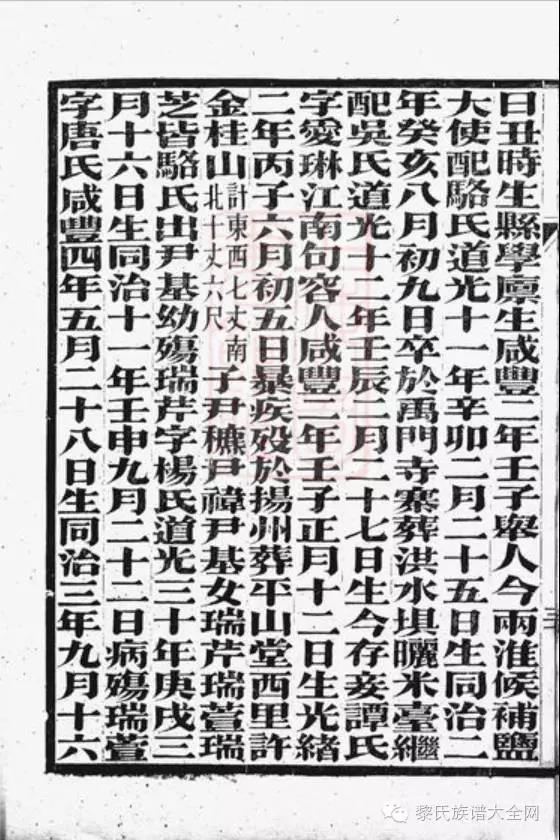 日丑時生縣學廪生咸豐二年壬子舉人今兩淮候補鹽
大使配駱氏道光十一年辛卯二月二十五日生同治二
年癸亥八月初九日卒於禹門寺寨葬洪水垻曬米臺繼
配吳氏道光十二年壬辰二月二十七日生今存妾譚氏
字愛琳江南句容人咸豐二年壬子正月十二日生光緒
二年丙子六月初五日暴疾殁於揚州葬平山堂西里許
金桂山計東西七丈南北十丈六尺子尹櫵尹禕尹基女瑞芹瑞萱瑞
芝皆駱氏出尹基幼殤瑞芹字楊氏道光三十年庚戌三
月十六日生同治十一年壬申九月二十二日病殤瑞萱
字唐氏咸豐四年五月二十八日生同治三年九月十六
黎氏族谱大全网